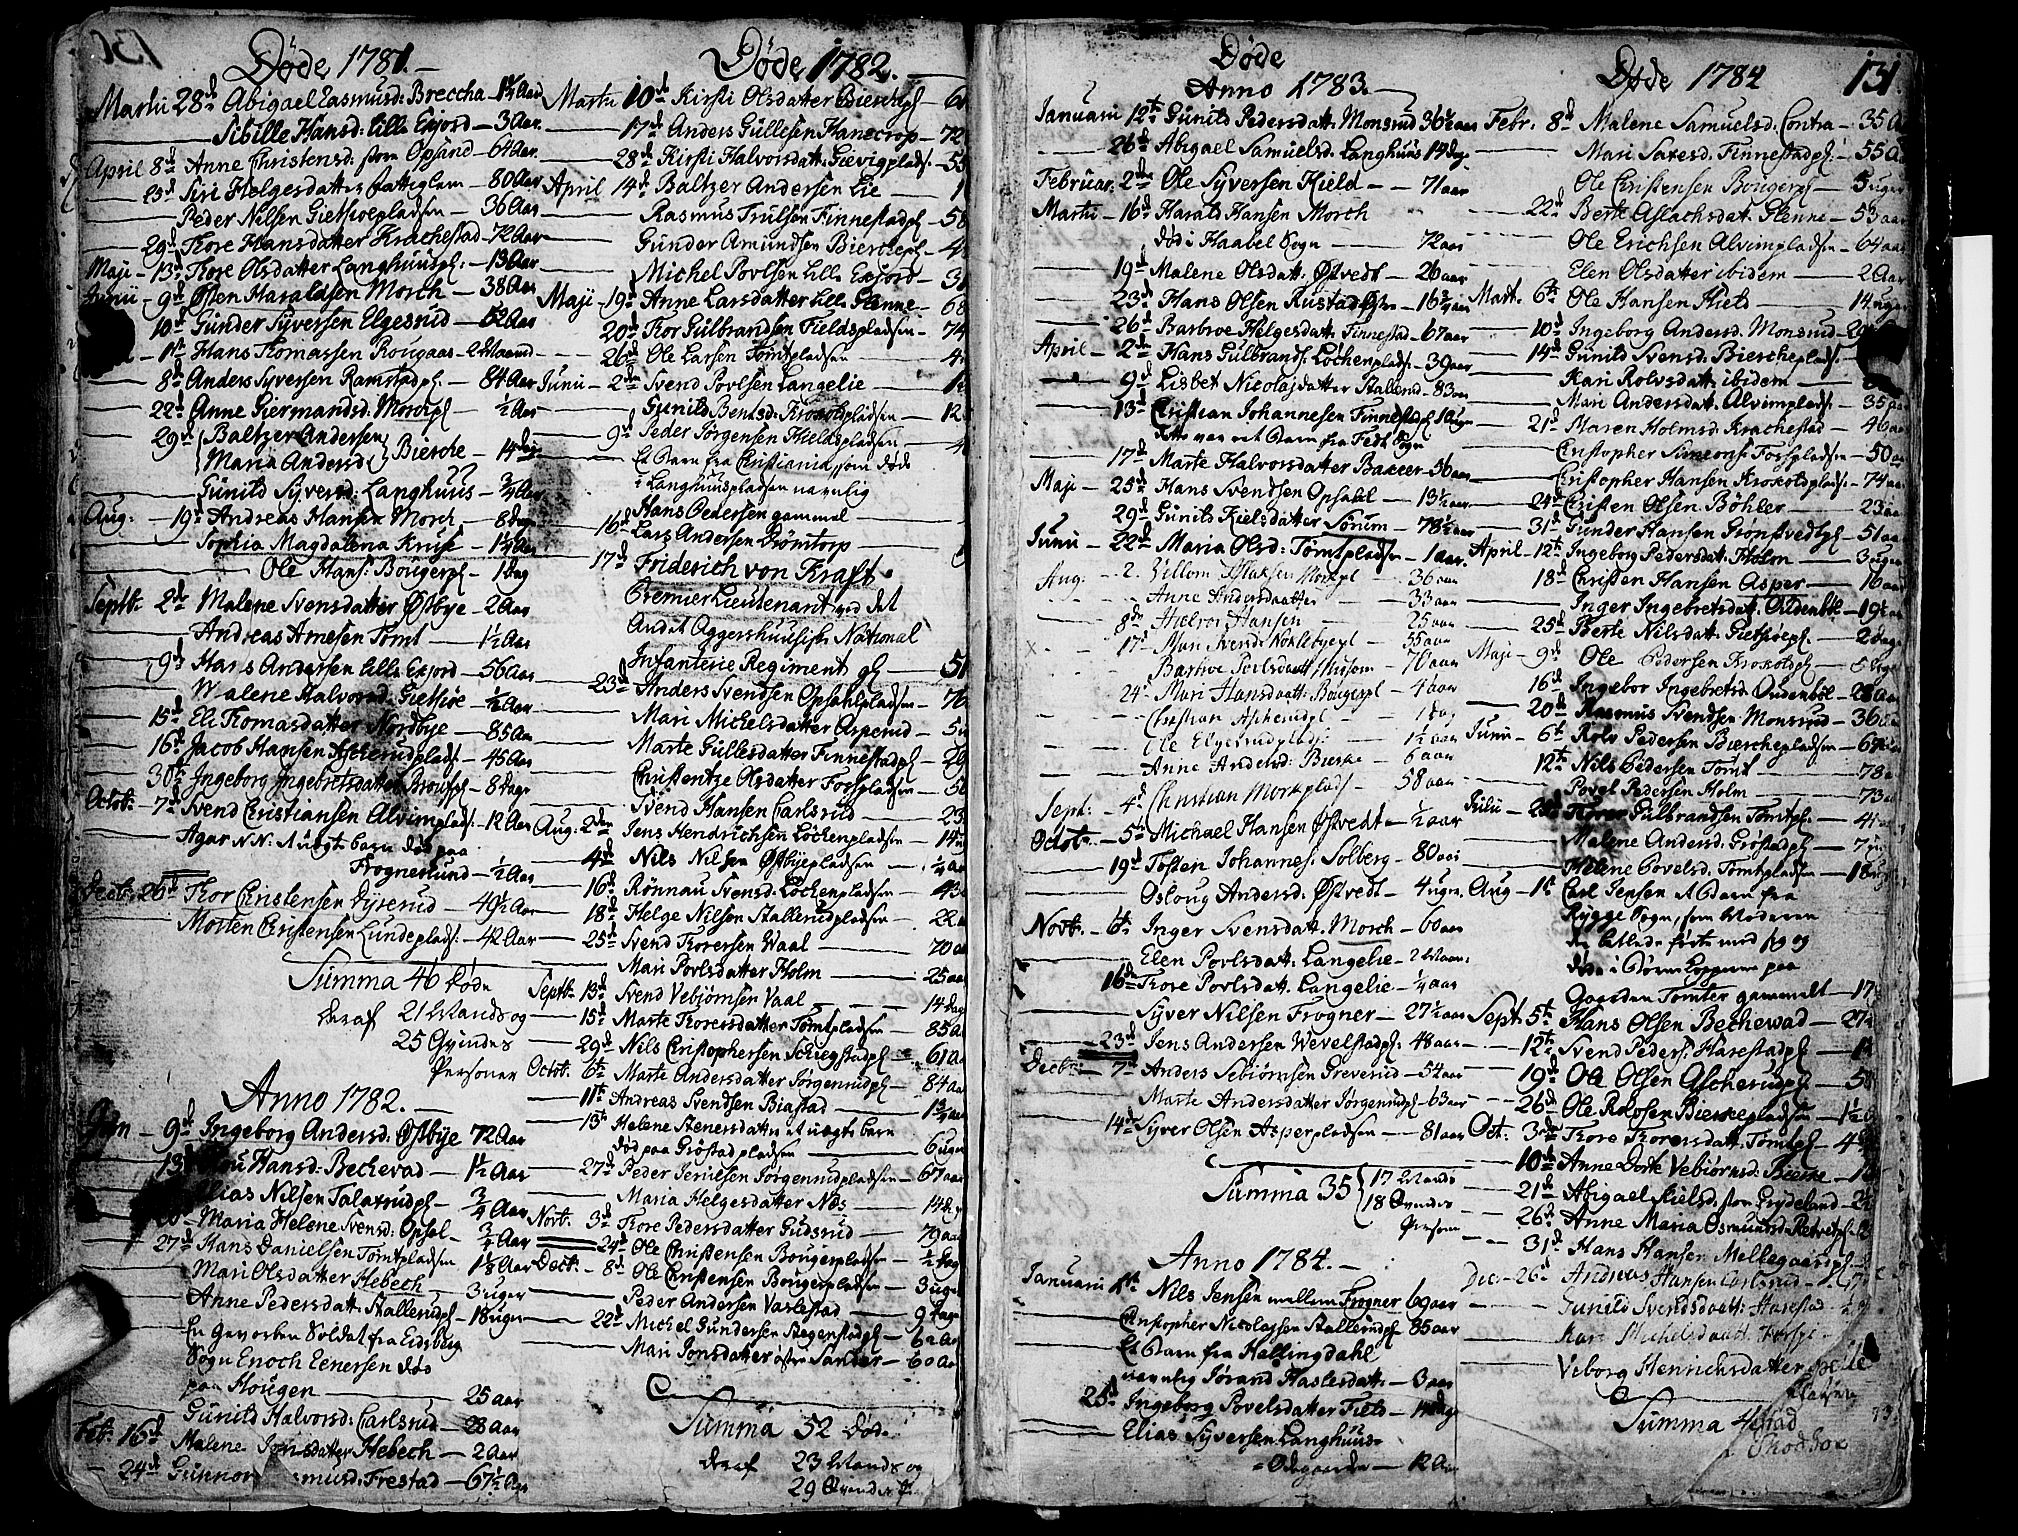 130
Døde 1781.
Martii 28d Abigael Rasmusd: Breccha - 1¼ Aar
Sibille Hansd: lille Exjord - 3 Aar.
April 8d Anne Christensd: store Opsand - 64 Aar.
25d Siri Helgesdatter fattiglem - 80 Aar
Peder Nilsen Giethøepladsen - 36 Aar
29d Thore Hansdatter Krachestad - 72 Aar
Maji - 13d Thore Olsdatter Langhuuspl: - 13 Aar
Junii - 9d Østen Haraldsen Morch - 38 Aar
10d Gunder Syversen Elgesrud - 52 Aar
1st Hans Thomassen Rougaas - 2 Maand
8d Anders Syversen Ramstadpl - 84 Aar
22d Anne Giermandsd: Morchpl - ½ Aar
29d Baltzer Andersen
Maria Andersd: Bierche - 14 dage
Gunild Syversd: Langhuus - ¾ Aar
Aug: - 19d Andreas Hansen Morch - 8 dage
Sophia Magdalena Kruse - 1¼ Aar
Ole Hans: Bougerpl - 1 dag
Septb: 2de Malene Svensdatter Østbye - 2 Aar
Andreas Arnesen Tomt - 1½ Aar
9d Hans Andersen lille Exjord - 56 Aar
Malene Halvorsd: Giethøe - ½ Aar
15d Eli Thomasdatter Nordbye - 85 Aar
16d Jacob Hansen Ascherudplads: - 45 Aar
30te Ingeborg Ingebretsdatter Brouspl - 8 dage
Octob: 7d Svend Christiansen Alvimplads: - 12 Aar
Agar N.N. Uægte barn død paa
Frogneslund - ½ Aar
Decb: 26d Thor Christensen Dyrerud - 40½ Aar
Morten Christensen Lundeplads: - 42 Aar
Summa 46 døde
deraf 21 Mands og
25 Qvindes
Personer
Anno 1782.
Jan - 9d Ingeborg Andersd: Østbye 72 Aar
13d Hansd: Bechevad - 1½ Aar
Elias Nilsen Talaxrudpl - ¾ Aar
Maria Helene Svensd: Opsal - ¾ Aar
27d Hans Danielsen Tomtpladsen 1⅛ Aar
Mari Olsdatter Hebech - 3 uger
Anne Pedersdat: Stallerudpl - 18 uger
En Geworben Soldat fra Eidsberg
Sogn Enoch Eenersen død
paa Hougen - 25 aar
Gunild Halvorsd: Carlsrud - 28 aar
Feb: 16d Malene Jonsdatter Hebech - 2 Aar
24d Gunnor smusd: Frestad - 67½ Aar
Døde 1782.
Martii 10d Kirsti Olsdatter Bierchepl
17d Anders Gullesen Hanecrop - 72
28d Kirsti Halvorsdat: Gievigplads: - 55
April 14d Baltzer Andersen Lie - 1
Rasmus Trulsen Finnestadpl - 58
Gunder Amundsen Bierchepl
Michel Povlsen lille Exjord
Maji - 19d Anne Larsdatter lille Glenne - 68
20d Thor Gulbrandsen Fieldspladsen - 74
26d Ole Larsen Tomtpladsen
Junii - 2d Svend Povlsen Langelie
Gunild Bentsd: Krokoldpladsen - 12
9d Peder Jørgensen Kieldspladsen
Et Barn fra Christiania, som døde
i Langhuuspladsen navnlig
Hans Pedersen gammel
16d Lars Andersen Drömtorp
17d Friderich von Kraft
Premier Lieutenant ved det
Andet Aggershuusiske National
Infanterie Regiment gl - 51
23d Anders Svendsen Opsahlpladsen - 76
Mari Michelsdatter Asperud
Marte Gullesdatter Finnestadpl - 29
Christentze Olsdatter Fosspladsen
Svend Hansen Carlsrud - 23
Aug: 2den Jens Hendrichsen Løchenpladsen
4d Nils Nilsen Østbyepladsen - ¼ aar
16d Rönnau Svensd: Løchenpladsen
18d Helge Nilsen Stallerudpladsen
25d Svend Thoresen Waal - 70
Mari Povlsdatter Holm - 25 aar
Septb: 13d Svend Vebjørnsen Vaal - 14 Dag
15d Marte Thoresdatter Tomtpladsen - 85 A
29d Nils Christophersen Schiegstadpl - 61 A
Octob: 6te Marte Andersdatter Jørgenrudpl - 84 aar
11te Andreas Svendsen Biastad - 1¾ aar
13d Helene Stenersdatter et uægte barn
død paa Grøstadpladsen - 6 uger
27d Peder Jensen Jørgenrudpladsen - 67 aar
Maria Helgesdatter Næs
Novb: 3d Thore Pedersdatter Gudsrud - 79 aar
24d Ole Christensen Bougerpladsen
Decb: 8d Ole Christensen Bougerpladsen - 3 uger
Peder Andersen Varlestad - 9 dage
22d Michel Gundersen Stegenstadpl - 62 Aar
Mari Jonsdatter østre Sander - 60 Aar
Summa 52 Døde
deraf 23 Mands og
29 Qvindes P
Døde
Anno 1783.
Januarii 12te Gunild Pedersdat: Monsrud 36½ aar
26d Abigael Samuelsd: Langhuus 14 dage
Februar: 2den Ole Syversen Kield - 71 aar
Martii - 16d Harald Hansen Morch
død i Haabel Sogn - 72 aar
19d Malene Olsdatt: Østvedt - 26 aar
23d Hans Olsen Rustad - 16¾ aar
26d Barbroe Helgesdat: Finnestad - 67 aar
April - 2de Hans Gulbrands: Løchenplads: 39 aar
9d Lisbet Nicolajdatter Stallerud - 83 aar
13d Christian Johannesen Finnestadpl 10 uger
dette var et Barn fra Fedt Sogn
17d Marte Halvorsdatter Backer - 56 aar
Maji - 25d Hans Svendsen Opsahl - 13½ aar
29d Gunild Kielsdatter Sørum - 78½ aar
Junii - 22de Maria Olsd: Tomtpladsen - 1 aar
Aug. - 2. Willom Isaksen Morkpl - 36 aar
Anne Andersdaatter - 33 aar
8de Halvor Hansen - 25 aar
17d Mari Svensd: Noklebyepl - 35 aar
Barbroe Povlsdaatt: Husom - 70 aar
24d Mari Hansdaatt: Bougerpl - 4½ aar
Christian Ascherudpl - 1 dag
Ole Elgesrudplads: - 1½ aar
Anne Andersd: Bierke - 6 aar
Sept: - 4d Christian Morkplads - 58 aar
Octob: - 5te Michael Hansen Østvedt - ½ aar
19d Tosten Johannes: Solberg - 80 aar
Osloug Andersd: Østvedt - 4 uger
Novb: - 6te Inger Svensdat: Morch - 60 aar
Elen Povlsdatt: Langelie - 2 Maan:
16de Thore Povlsdat: Langelie - ¼ aar
Syver Nilsen Frogner - 27½ aar
23d Jens Andersen Wevelstadpl: 48 aar
Decb: - 7de Anders Sebiørnsen Greverud - 54 aar
Marte Andersdatter Jørgenrudpl 63 aar
14de Syver Olsen Asperpladsen - 81 aar
Summa 35 17 Mands
18 Qvindes
Person
Anno 1784.
Januarii 1st Nils Jensen mellem Frogner 69 aar
Christopher Nicolaysen Stallerudpl 85 aar
Et Barn fra Hallingdahl
navnlig Jørand Haslesdatt: - 3 aar
25d Ingeborg Povelsdatter Field - 14 dage
Elias Syversen Langhuus-
= Ødegaarden - 12 Aar
Døde 1784
131.
Febr. 8d Malene Samuelsd: Contra - 35 Aar
Mari Saxesd: Finnestadpl: - 55 Aar
Ole Christensen Bougerpl - 3 uger
22d Berte Aslachsdat: Glenne - 53 aar
Ole Erichsen Alvimpladsen - 64 aar
Elen Olsdatter ibidem - 2 Aar
Mart. 6te Ole Hansen Kield - 14 uger
10d Ingeborg Andersd: Monsrud
14d Gunild Svensd: Bierchepladsen
Kari Rolvsdatt: ibidem
Mari Andersdat: Alvimplads: - 35 aar
21d Maren Holmsd: Krachestad - 46 aar
Christopher Simons: Fosspladsen - 50 aar
Christopher Hansen Krokoldplads: - 74 aar
24d Christen Olsen Böhler - 23 aar
31d Gunder Hansen Grønsvedtpl - 51 aar
April - 12te Ingeborg Pedersdat: Holm - 3 uger
18d Christen Hansen Asper - 16 aar
Inger Ingebretsdat: Oudenböl - 19½ aar
25d Berte Nilsdat: Giethøepl - 2 dage
Maji - 9d Ole Pedersen Krokoldpl
16d Ingebor Ingebretsd: Oudenböl - 28 aar
20d Rasmus Svendsen Monsrud - 36 aar
Junii - 6te Rolv Pedersen Bierchepladsen
12te Nils Pedersen Tomt - 78 a
Povel Pedersen Holm - 73 a
Julii Thorer Gulbrandsen Tomtpl: - 41 aar
Malene Andersd: Grøstadpl
Helene Povelsd: Tomtpladsen - 18 uger
Aug - 1st Carl Jensen et Barn fra
Rygge Sogn, som Moderen
der betlede førte med sig og
døde i Børne Kopperne paa
Gaarden Tomter gammelt - 17
Sept: 5te Hans Olsen Bechevad - 27
12te Svend Peders: Harestadpl
19d Ole Olsen Ascherudpl
26d Ole Rolfsen Bierkepladsen - 1½
Oct: 3die Thore Thoresdatt: Tomtpl
10de Anne Dorte Vebiørnsd: Bierke
21d Abigael Kielsd: store Frydeland
26d Anne Maria Osmundsd: Retvetpl
31d Hans Hansen Mellegaardspl
Dec - 26d Andreas Hansen Carlsrud
Gunild Svendsdaatt: Harestad
Kari Michelsdaatt:
Veborg Henrichsdatter
Summa